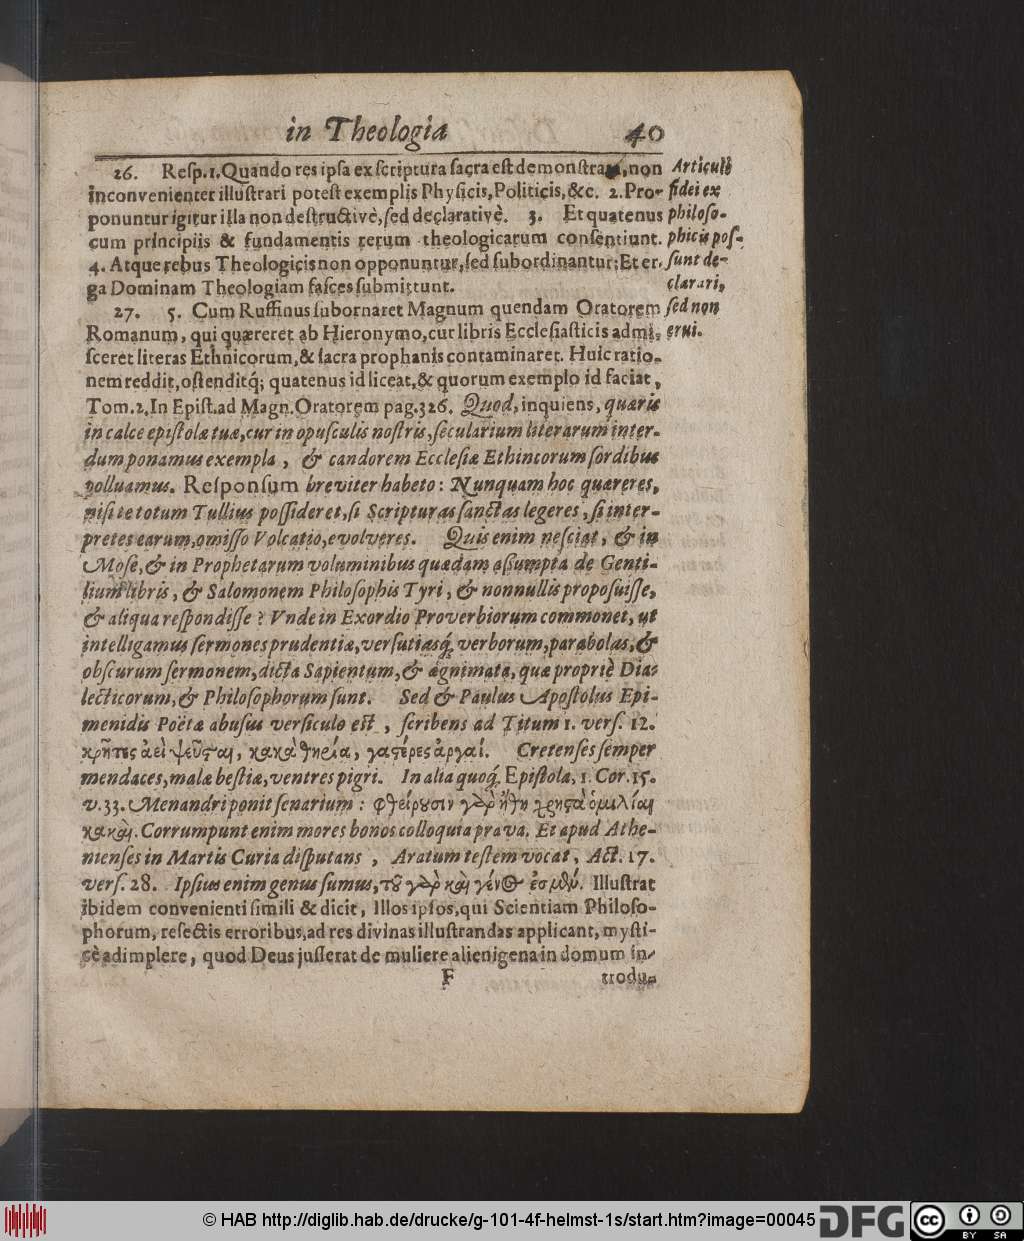 in Theologia 40
26. Reſp. 1. Quando res ipſa ex ſcriptura ſacra eſt demonſtrata, non
inconvenienter illuſtrari poteſt exemplis Phyſicis, Politicis, &c. 2. Pro-
ponuntur igitur illa non deſtructivè, ſed declarativè. 3. Et quatenus
cum principiis & fundamentis rerum theologicarum conſentiunt.
4. Atque rebus Theologicis non opponuntur, ſed ſubordinantur; Et er-
ga Dominam Theologiam faſces ſubmittunt.
Articuli
fidei ex
philoſo-
phicis poſ-
ſunt de-
clarari,
ſed non
erui.
27. 5. Cum Ruffinus ſubornaret Magnum quendam Oratorem
Romanum, qui quæreret ab Hieronymo, cur libris Eccleſiaſticis admi-
ſceret literas Ethnicorum, & ſacra prophanis contaminaret. Huic ratio-
nem reddit, oſtenditq́; quatenus id liceat, & quorum exemplo id faciat,
Tom. 2. In Epiſt. ad Magn. Oratorem pag. 326. Quod, inquiens, quæris
in calce epiſtolæ tuæ, cur in opuſculis noſtris, ſecularium literarum inter-
dum ponamus exempla, & candorem Eccleſiæ Ethincorum ſordibus
polluamus. Reſponſum breviter habeto: Nunquam hoc quæreres,
niſi te totum Tullius poſſideret, ſi Scripturas ſanctas legeres, ſi inter-
pretes earum, omiſſo Volcatio, evolveres. Quis enim neſciat, & in
Moſe, & in Prophetarum voluminibus quædam aſſumpta de Genti-
lium libris, & Salomonem Philoſophis Tyri, & nonnullis propoſuiſſe,
& aliqua reſpondiſſe? Vnde in Exordio Proverbiorum commonet, ut
intelligamus ſermones prudentiæ, verſutiasq́; verborum, parabolas, &
obſcurum ſermonem, dicta Sapientum, & ægnimata, quæ propriè Dia-
lecticorum, & Philoſophorum ſunt. Sed & Paulus Apoſtolus Epi-
menidis Poëtæ abuſus verſiculo eſt, ſcribens ad Titum 1. verſ. 12.
κρῆτες ἀεὶ ψεῦςαι, κακὰ θηρία, γαςέρες ἀργαί. Cretenſes ſemper
mendaces, malæ beſtiæ, ventres pigri. In alia quoq́; Epiſtola, 1. Cor. 15.
v. 33. Menandri ponit ſenarium: φθείρουσιν γὰρ ἤθη χρηςὰ ὁμιλίαι
κακαὶ. Corrumpunt enim mores bonos colloquia prava. Et apud Athe-
nienſes in Martis Curia diſputans, Aratum teſtem vocat, Act. 17.
verſ. 28. Ipſius enim genus ſumus, τοῦ γὰρ καὶ γένος ἐσμέν. Illuſtrat
ibidem convenienti ſimili & dicit, Illos ipſos, qui Scientiam Philoſo-
phorum, reſectis erroribus, ad res divinas illuſtrandas applicant, myſti-
cè adimplere, quod Deus juſſerat de muliere alienigena in domum in-
F trodu-
© HAB http://diglib.hab.de/drucke/g-101-4f-helmst-1s/start.htm?image=00045
DFG
cc BY SA